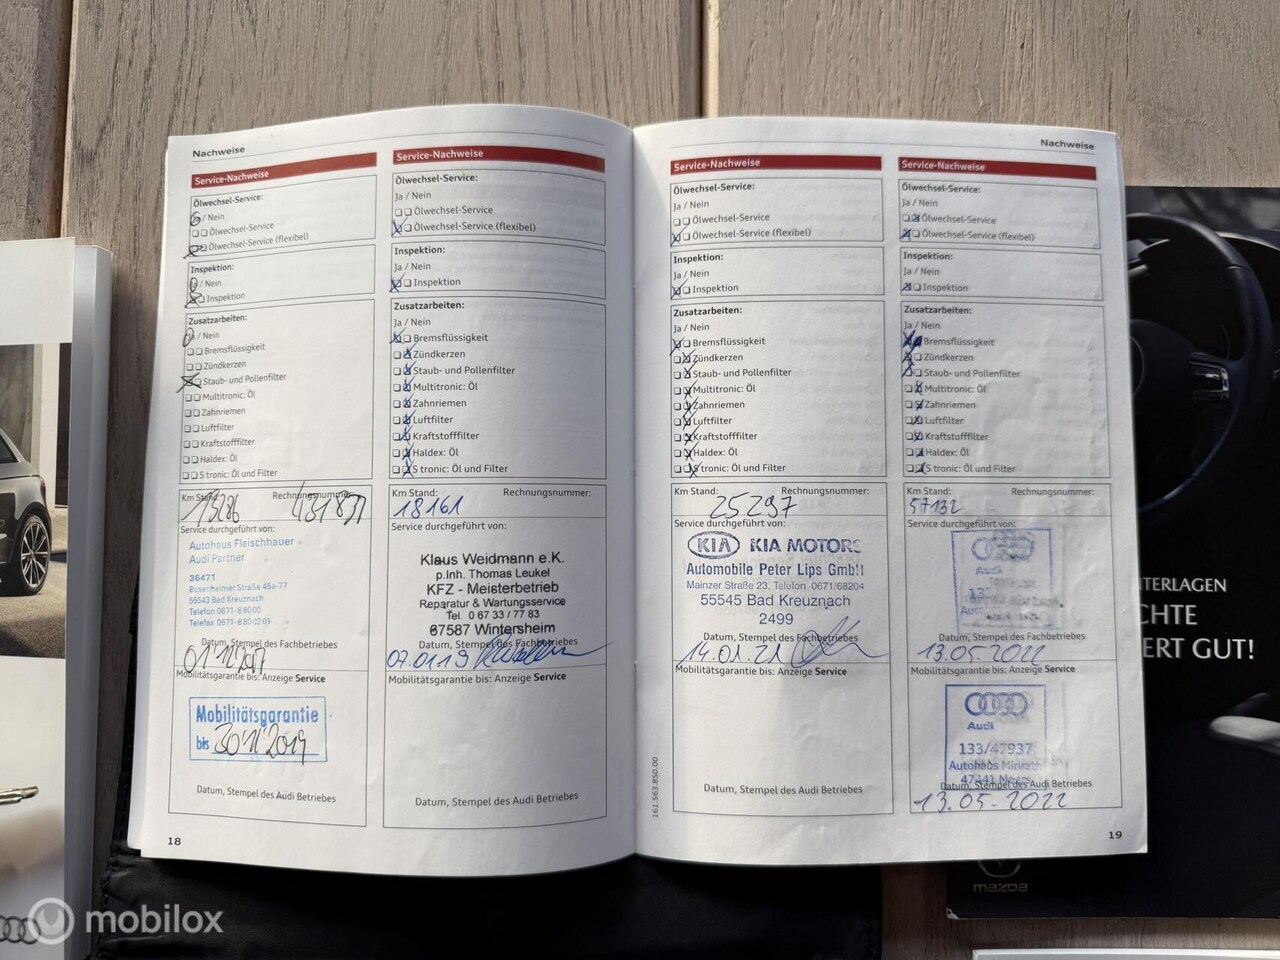 Nachweise
Service-Nachweise
Ölwechsel-Service:
Ja / Nein
Ölwechsel-Service
Ölwechsel-Service (flexibel)
Inspektion:
Ja / Nein
Inspektion
Zusatzarbeiten:
Ja / Nein
Bremsflüssigkeit
Zündkerzen
Staub- und Pollenfilter
Multitronic: Öl
Zahnriemen
Luftfilter
Kraftstofffilter
Haldex: Öl
S tronic: Öl und Filter
Km Stand: Rechnungsnummer:
Service durchgeführt von:
Autohaus Fleischhauer
Audi Partner
36471
Bosenheimer Straße 45a-77
55543 Bad Kreuznach
Telefon 0671-8 80 00
Telefax 0671-8 80 02 01
Datum, Stempel des Fachbetriebes
Mobilitätsgarantie bis: Anzeige Service
Mobilitätsgarantie
bis 30 11 2019
Datum, Stempel des Audi Betriebes
18
Service-Nachweise
Ölwechsel-Service:
Ja / Nein
Ölwechsel-Service
Ölwechsel-Service (flexibel)
Inspektion:
Ja / Nein
Inspektion
Zusatzarbeiten:
Ja / Nein
Bremsflüssigkeit
Zündkerzen
Staub- und Pollenfilter
Multitronic: Öl
Zahnriemen
Luftfilter
Kraftstofffilter
Haldex: Öl
S tronic: Öl und Filter
Km Stand: Rechnungsnummer:
18161
Service durchgeführt von:
Klaus Weidmann e.K.
p.Inh. Thomas Leukel
KFZ - Meisterbetrieb
Reparatur & Wartungsservice
Tel. 0 67 33 / 77 83
67587 Wintersheim
Datum, Stempel des Fachbetriebes
07.01.19
Mobilitätsgarantie bis: Anzeige Service
Datum, Stempel des Audi Betriebes
Nachweise
Service-Nachweise
Ölwechsel-Service:
Ja / Nein
Ölwechsel-Service
Ölwechsel-Service (flexibel)
Inspektion:
Ja / Nein
Inspektion
Zusatzarbeiten:
Ja / Nein
Bremsflüssigkeit
Zündkerzen
Staub- und Pollenfilter
Multitronic: Öl
Zahnriemen
Luftfilter
Kraftstofffilter
Haldex: Öl
S tronic: Öl und Filter
Km Stand: Rechnungsnummer:
25297
Service durchgeführt von:
KIA KIA MOTORS
Automobile Peter Lips GmbH
Mainzer Straße 23, Telefon 0671/68204
55545 Bad Kreuznach
2499
Datum, Stempel des Fachbetriebes
14.01.21
Mobilitätsgarantie bis: Anzeige Service
Datum, Stempel des Audi Betriebes
161.563.850.00
Service-Nachweise
Ölwechsel-Service:
Ja / Nein
Ölwechsel-Service
Ölwechsel-Service (flexibel)
Inspektion:
Ja / Nein
Inspektion
Zusatzarbeiten:
Ja / Nein
Bremsflüssigkeit
Zündkerzen
Staub- und Pollenfilter
Multitronic: Öl
Zahnriemen
Luftfilter
Kraftstofffilter
Haldex: Öl
S tronic: Öl und Filter
Km Stand: Rechnungsnummer:
57132
Service durchgeführt von:
Audi
Datum, Stempel des Fachbetriebes
13.05.2022
Mobilitätsgarantie bis: Anzeige Service
Audi
133/47937
Autohaus Minrath
47441 Moers
Datum, Stempel des Audi Betriebes
13.05-2022
19
TERLAGEN
CHTE
ERT GUT!
mazda
mobilox